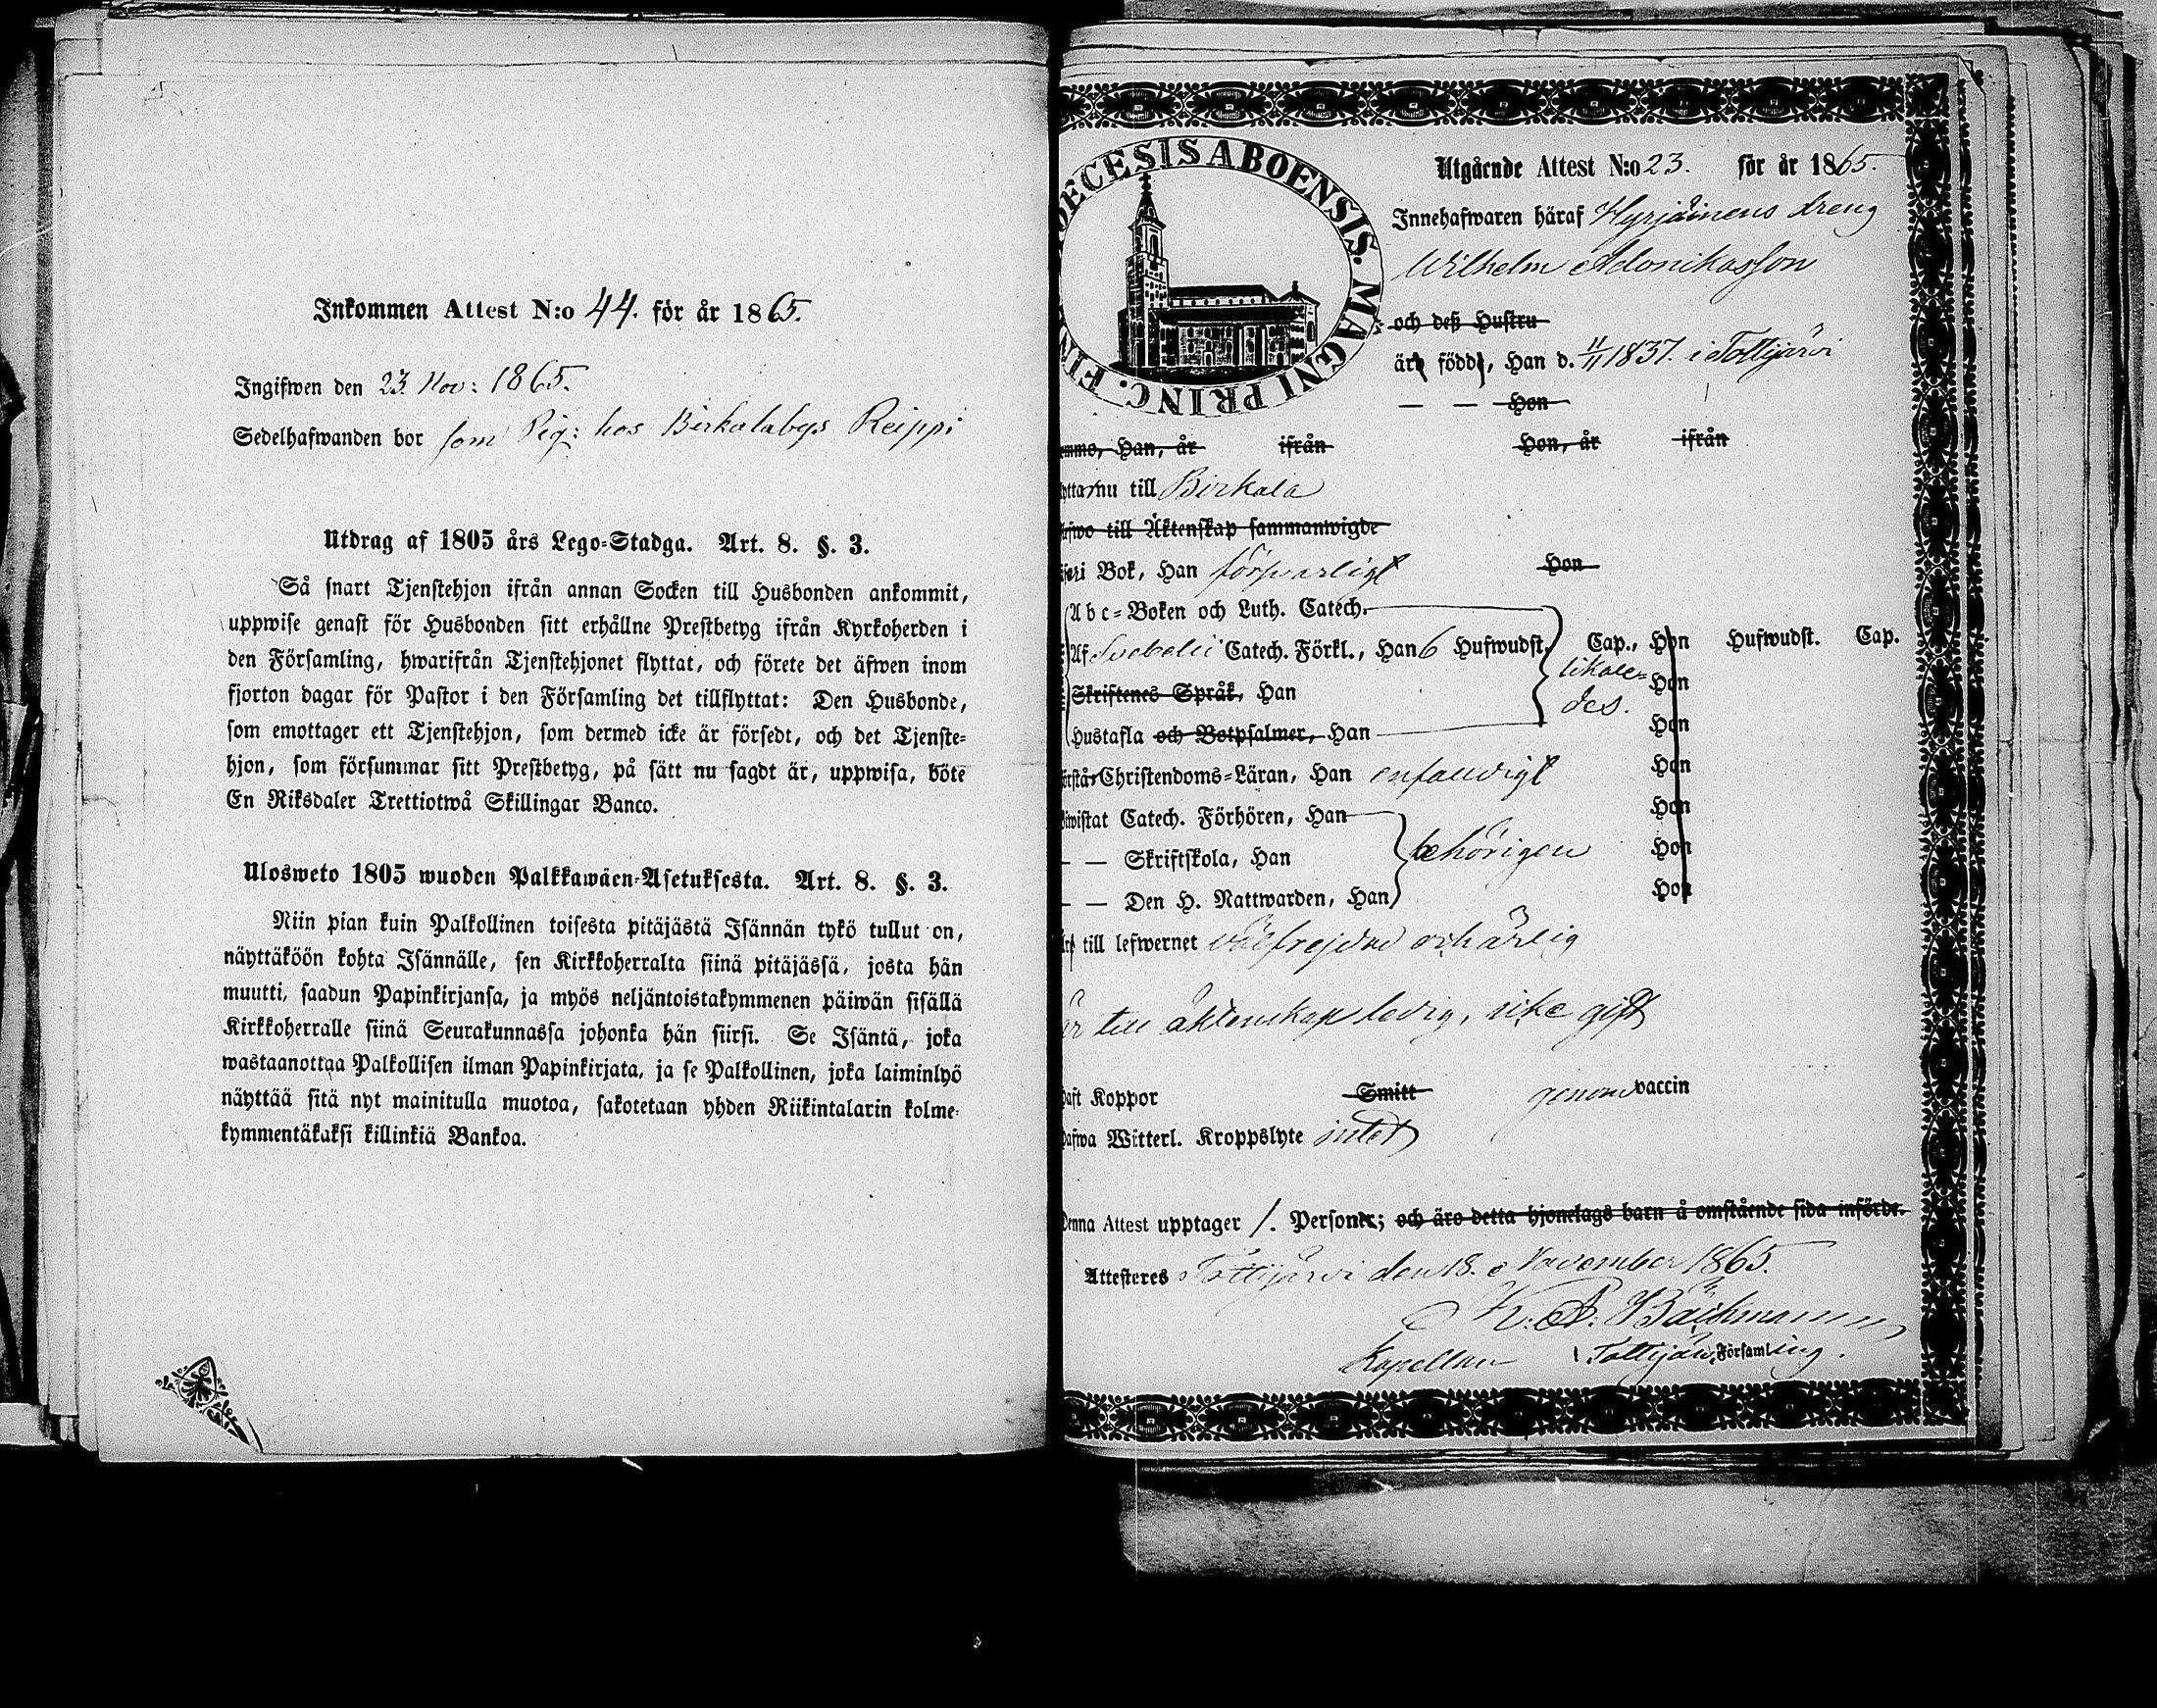 Inkommen Attest N:o 44. för år 1865.
Ingifwen den 23. Nov: 1865.
Sedelhafwanden bor som Pig: hos Birkalabys Reippi
Utdrag af 1805 års Lego=Stadga. Art. 8. §. 3.
Så snart Tjenstehjon ifrån annan Socken till Husbonden ankommit,
uppwise genast för Husbonden sitt erhållne Prestbetyg ifrån Kyrkoherden i
den Församling, hwarifrån Tjenstehjonet flyttat, och förete det äfwen inom
fjorton dagar för Pastor i den Församling det tillflyttat: Den Husbonde,
som emottager ett Tjenstehjon, som dermed icke är försedt, och det Tjenste=
hjon, som försummar sitt Prestbetyg, på sätt nu sagdt är, uppwisa, böte
En Riksdaler Trettiotwå Skillingar Banco.
Ulosweto 1805 wuoden Palkkawäen=Asetuksesta. Art. 8. §. 3.
Niin pian kuin Palkollinen toisesta pitäjästä Isännän tykö tullut on,
näyttäköön kohta Isännälle, sen Kirkkoherralta siinä pitäjässä, josta hän
muutti, saadun Papinkirjansa, ja myös neljäntoistakymmenen päiwän sisällä
Kirkkoherralle siinä Seurakunnassa johonka hän siirsi. Se Isäntä, joka
wastaanottaa Palkollisen ilman Papinkirjata, ja se Palkollinen, joka laiminlyö
näyttää sitä nyt mainitulla muotoa, sakotetaan yhden Riikintalarin kolme=
kymmentäkaksi killinkiä Bankoa.
ŒCESIS ABOENSIS. MAGNI PRINC. FIN
Utgående Attest N:o 23. för år 1865.
Innehafwaren häraf Hyrjäinens dreng
Wilhelm Adonikasson
och deß Hustru
äro födde, Han d. 11/11 1837. i Tottijärvi
— — Hon
Han, år ifrån Hon, år ifrån
nu till Birkala
till Äktenskap sammanwigde
i Bok, Han försvarligt Hon
Abc=Boken och Luth. Catech.
Af Svebelii Catech. Förkl., Han 6 Hufwudst. Cap., Hon Hufwudst. Cap.
likale=
des.
Skriftenes Språk, Han Hon
Hustafla och Botpsalmer, Han Hon
Christendoms=Läran, Han enfaldigt Hon
Catech. Förhören, Han Hon
— — Skriftskola, Han behörigen Hon
— — Den H. Nattwarden, Han Hon
till lefwernet välfrejdad och ärlig
är till äktenskap ledig, icke gift
Koppor Smitt genom vaccin
Witterl. Kroppslyte intet
Denna Attest upptager 1. Personer; och äro detta hjonelags barn å omstående sida införde.
Attesteres Tottijärvi den 18. November 1865.
K: A: Bäckmann
Kapellan i Tottijärvi Församling.